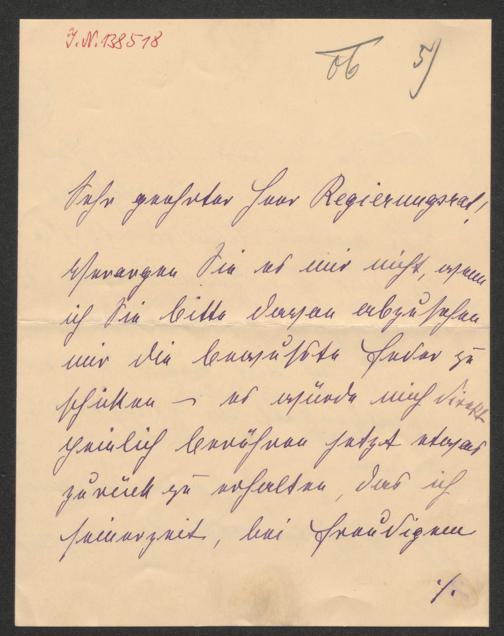 J.N. 138518
5)
Sehr geehrter Herr Regierungsrat!
Verargen Sie es mir nicht, wenn
ich Sie bitte davon abzusehen
mir die bewußte Feder zu
schicken – es würde mich direkt
peinlich berühren jetzt etwas
zurück zu erhalten, das ich
seinerzeit, bei freudigem
./.